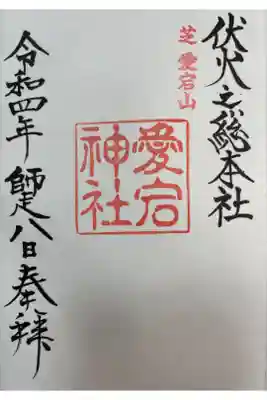 伏火之総本社
芝愛宕山
愛宕
神社
令和四年師走八日奉拝